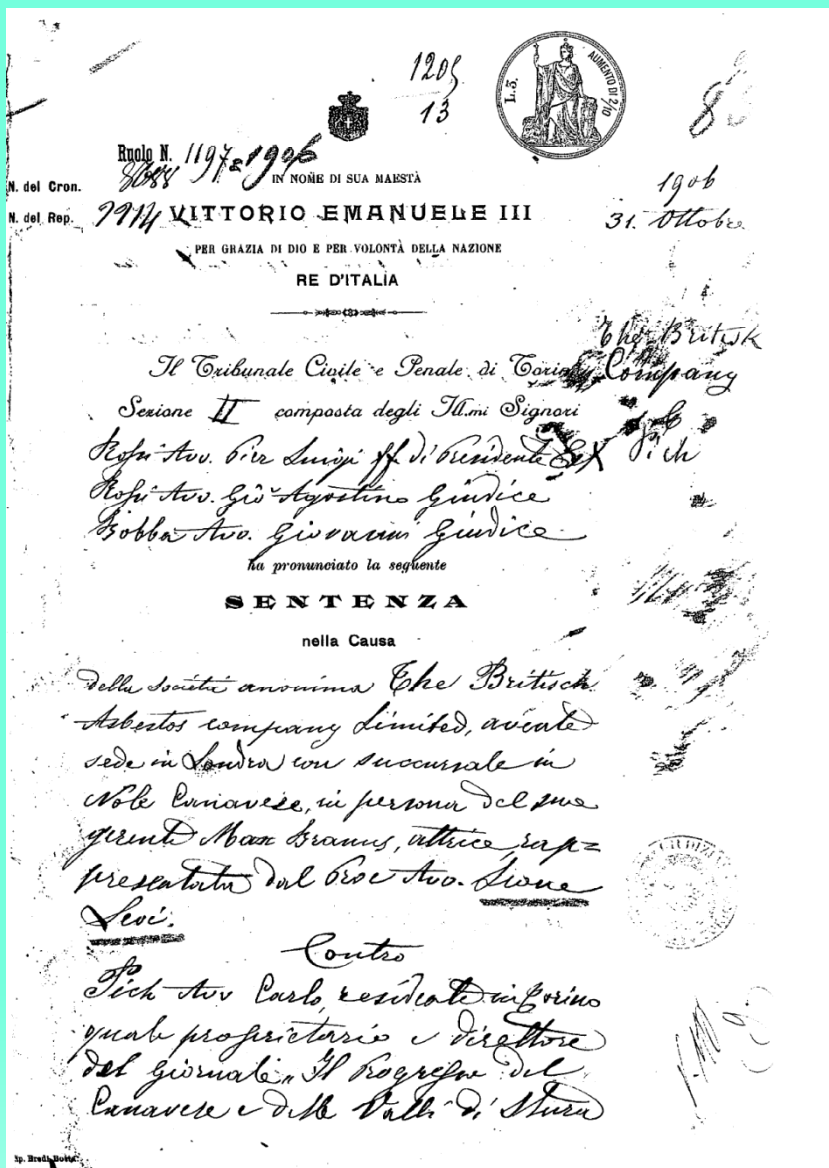 1205
13
L. 3.
AUMENTO DI 2/10
Ruolo N. 1197 1906
N. del Cron. 8088
IN NOME DI SUA MAESTÀ
1906
N. del Rep. 2214 VITTORIO EMANUELE III
31. Ottobre
PER GRAZIA DI DIO E PER VOLONTÀ DELLA NAZIONE
RE D'ITALIA
The Britisk
Il Tribunale Civile e Penale di Torino Company
Sezione II composta degli Ill.mi Signori
Rossi Avv. Pier Luigi ff. di Presidente Pich
Rossi Avv. Gio Agostino Giudice
Bobba Avv. Giovanni Giudice
ha pronunciato la seguente
SENTENZA
nella Causa
della società anonima The Britisch
Asbestos company Limited, avente
sede in Londra con succursale in
Nole Canavese, in persona del suo
gerente Max Brauns, attrice, rap=
presentata dal Proc Avv. Leone
Levi.
Contro
Pich Avv Carlo, residente in Torino
quale proprietario e direttore
del giornale "Il Progresso del
Canavese e delle Valli di Stura